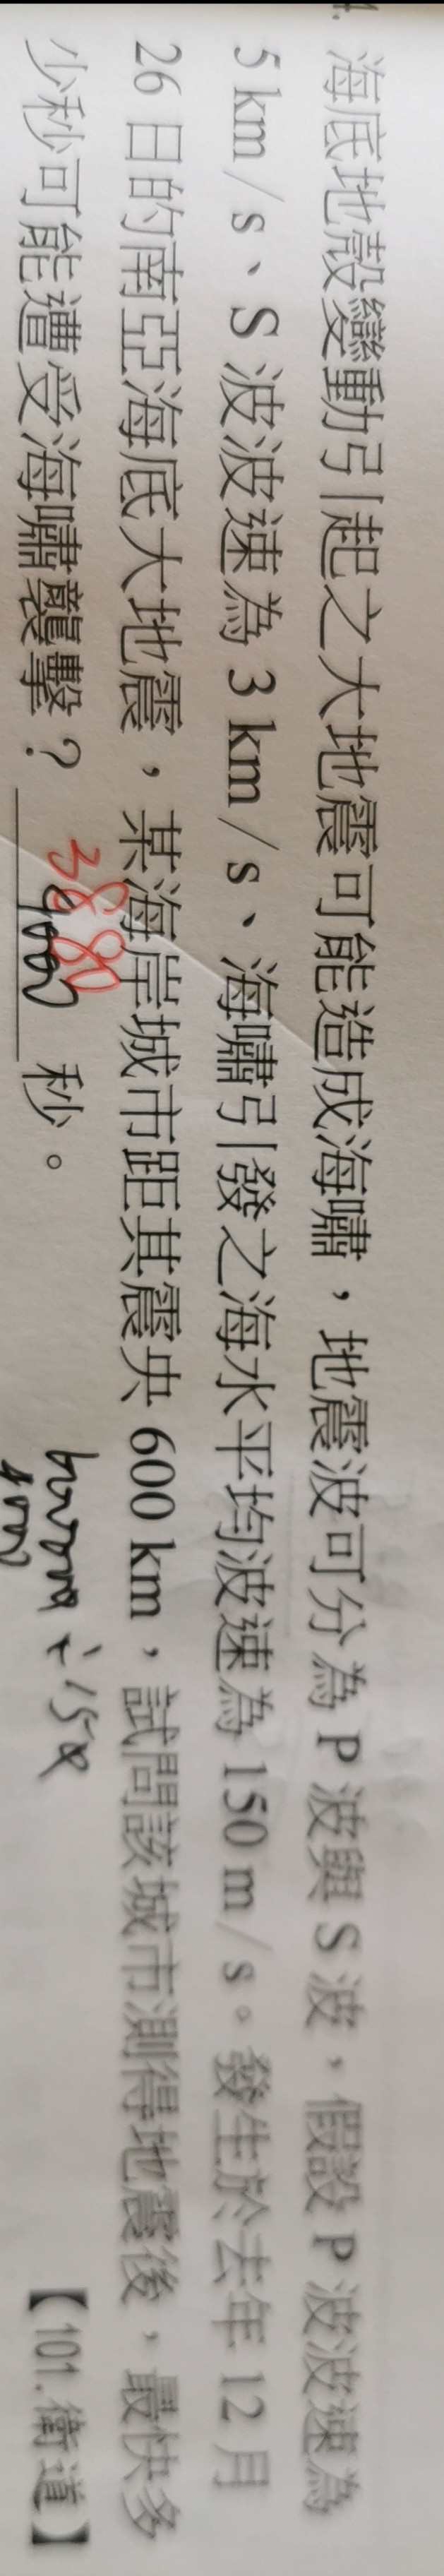 4. 海底地殼變動引起之大地震可能造成海嘯，地震波可分為 P 波與 S 波，假設 P 波波速為
5 km/s、S 波波速為 3 km/s、海嘯引發之海水平均波速為 150 m/s。發生於去年 12 月
26 日的南亞海底大地震，某海岸城市距其震央 600 km，試問該城市測得地震後，最快多
少秒可能遭受海嘯襲擊？ 4000 3880 秒。 【101.衛道】
600000 ÷ 150
4000